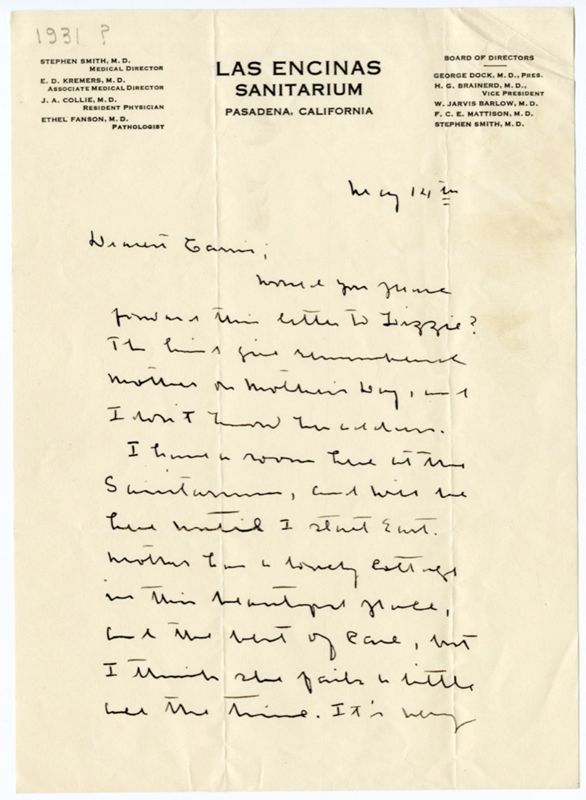 1931 ?
STEPHEN SMITH, M. D.
MEDICAL DIRECTOR
E. D. KREMERS, M. D.
ASSOCIATE MEDICAL DIRECTOR
J. A. COLLIE, M. D.
RESIDENT PHYSICIAN
ETHEL FANSON, M. D.
PATHOLOGIST
LAS ENCINAS
SANITARIUM
PASADENA, CALIFORNIA
BOARD OF DIRECTORS
GEORGE DOCK, M. D., PRES.
H. G. BRAINERD, M. D.,
VICE PRESIDENT
W. JARVIS BARLOW, M. D.
F. C. E. MATTISON, M. D.
STEPHEN SMITH, M. D.
May 14th
Dearest
Would you please
forward this letter to Lizzie?
The kind girl remembered
Mother on Mother's Day, and
I don't know her address.
I have a room here at the
Sanitarium, and will be
here until I start East.
Mother has a lovely cottage
in this beautiful place,
and the best of care, but
I think she fails a little
all the time. It's very